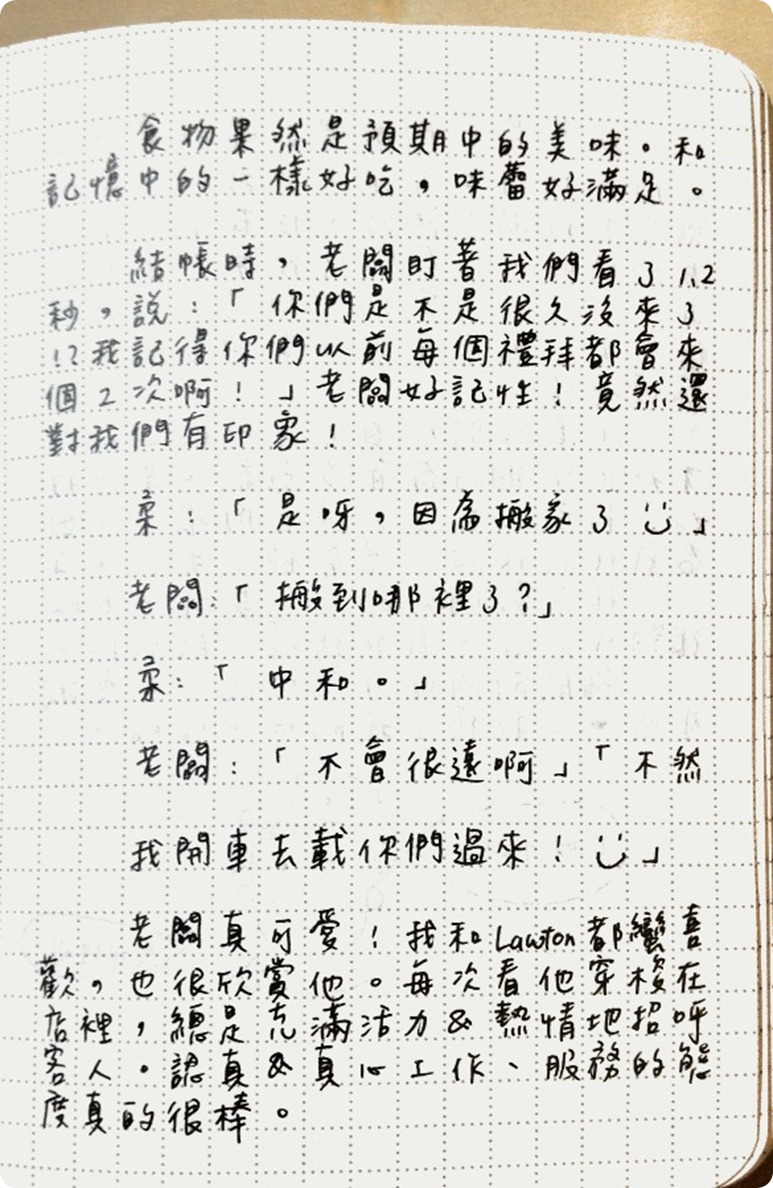 食物果然是預期中的美味。和
記憶中的一樣好吃，味蕾好滿足。
結帳時，老闆盯著我們看了1、2
秒，說：「你們是不是很久沒來了
！？我記得你們以前每個禮拜都會來
個2次啊！」老闆好記性！竟然還
對我們有印象！
柔：「是呀，因為搬家了 :)」
老闆：「搬到哪裡了？」
柔：「中和。」
老闆：「不會很遠啊」「不然
我開車去載你們過來！:)」
老闆真可愛！我和Lawton都蠻喜
歡，也很欣賞他。每次看他穿梭在
店裡，總是充滿活力&熱情地招呼
客人。認真&真心工作、服務的態
度真的很棒。